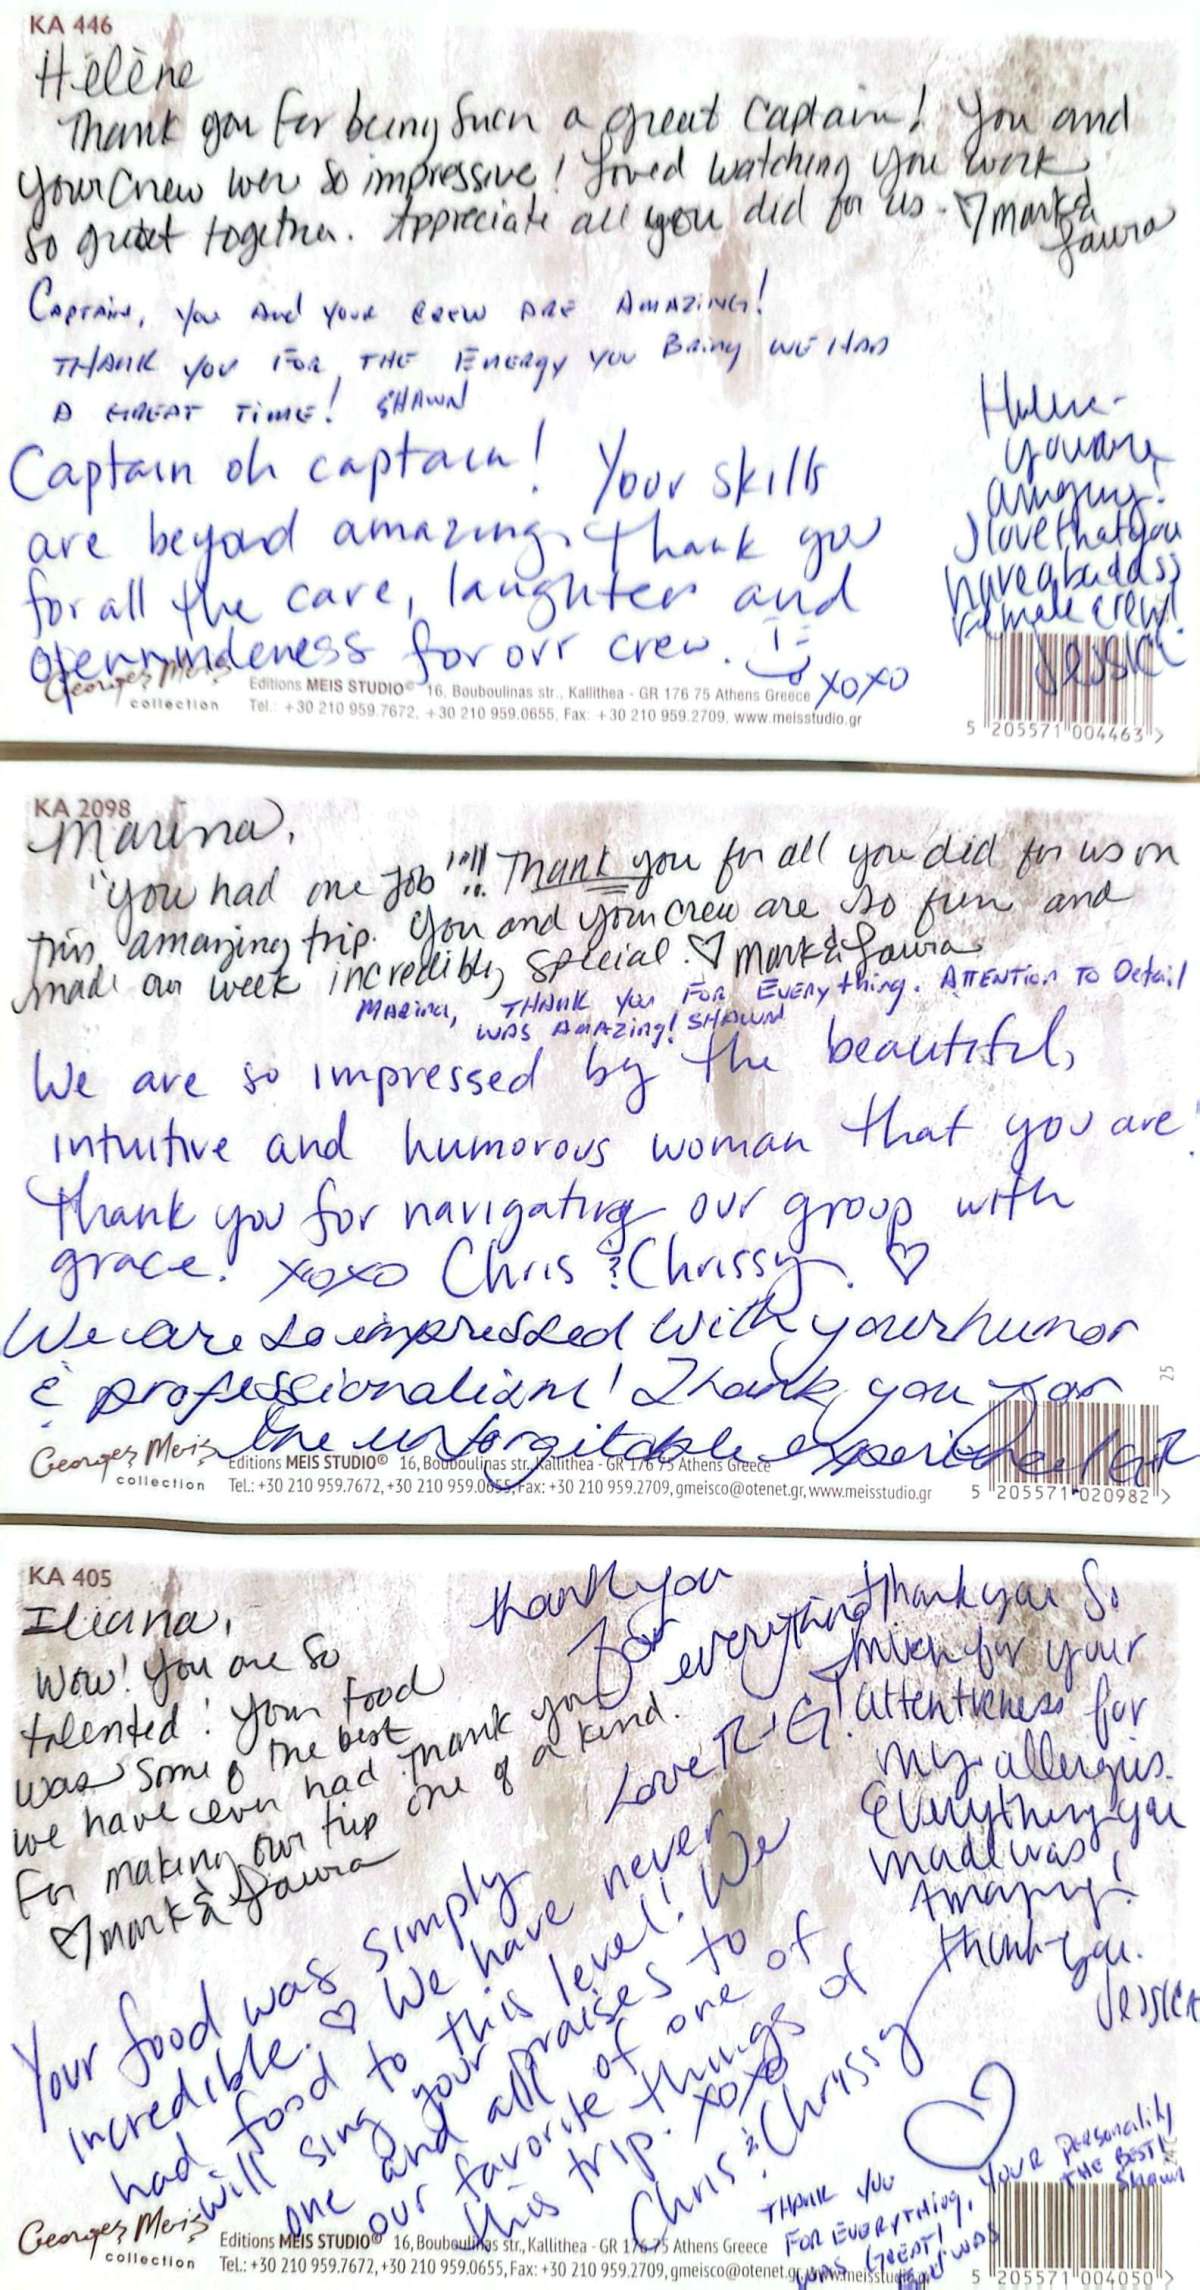 KA 446
Hélène
Thank you for being such a great Captain! You and
your crew were so impressive! Loved watching you work
so great together. Appreciate all you did for us. ♡ Mark &
Laura
Captain, you and your crew are amazing!
Thank you for the energy you bring we had
a great time! Shawn
Captain oh captain! Your skills
are beyond amazing. Thank you
for all the care, laughter and
openmindeness for our crew.
xoxo
Helene-
you are
amazing!
I love that you
have a badass
female crew!
Jessica
Georges Meis
collection
Editions MEIS STUDIO© 16, Bouboulinas str., Kallithea - GR 176 75 Athens Greece
Tel.: +30 210 959.7672, +30 210 959.0655, Fax: +30 210 959.2709, www.meisstudio.gr
5 205571 004463 >
KA 2098
Marina,
"You had one job"!!!! Thank you for all you did for us on
this amazing trip. You and your crew are so fun and
made our week incredibly special. ♡ Mark & Laura
Marina, thank you for everything. Attention to detail
was amazing! Shawn
We are so impressed by the beautiful,
intuitive and humorous woman that you are!
Thank you for navigating our group with
grace. xoxo Chris & Chrissy. ♡
We are so impressed with your humor
& professionalism! Thank you for
the unforgitable experience!
25
Georges Meis
collection
Editions MEIS STUDIO© 16, Bouboulinas str. Kallithea - GR 176 75 Athens Greece
Tel.: +30 210 959.7672, +30 210 959.0655, Fax: +30 210 959.2709, gmeisco@otenet.gr, www.meisstudio.gr
5 205571 020982 >
KA 405
Iliana,
Wow! You are so
talented! Your food
was some of the best
we have ever had. Thank you
for making our trip one of a kind.
♡ Mark & Laura
Thank you
for everything
Love R & G!
Thank you so
much for your
attentiveness for
my allergies.
Everything you
made was
amazing!
Thank you.
Jessica
Your food was simply
incredible. ♡ We have never
had food to this level! We
will sing your praises to
one and all of one of
our favorite things of
this trip. xoxo
Chris & Chrissy
♡
Thank you
for everything, your personality
was great! was the best!
Shawn
Georges Meis
collection
Editions MEIS STUDIO© 16, Bouboulinas str., Kallithea - GR 176 75 Athens Greece
Tel.: +30 210 959.7672, +30 210 959.0655, Fax: +30 210 959.2709, gmeisco@otenet.gr, www.meisstudio.gr
5 205571 004050 >